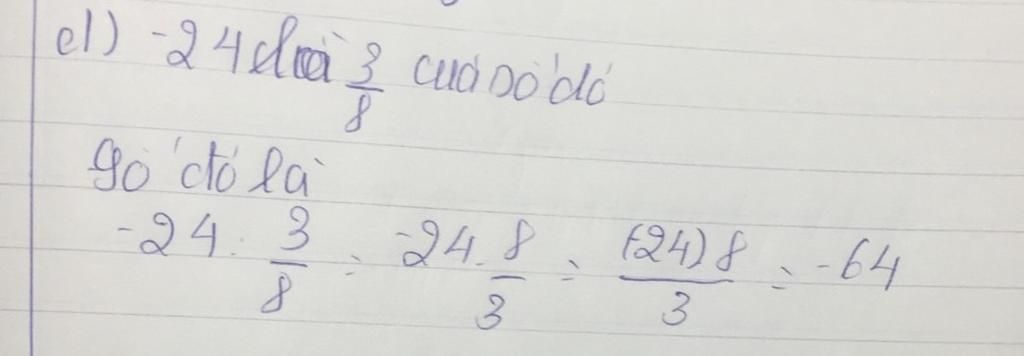 d) -24 là 3/8 của số đó
Số đó là
-24 . 3/8 = -24 . 8/3 = (-24) 8/3 = -64